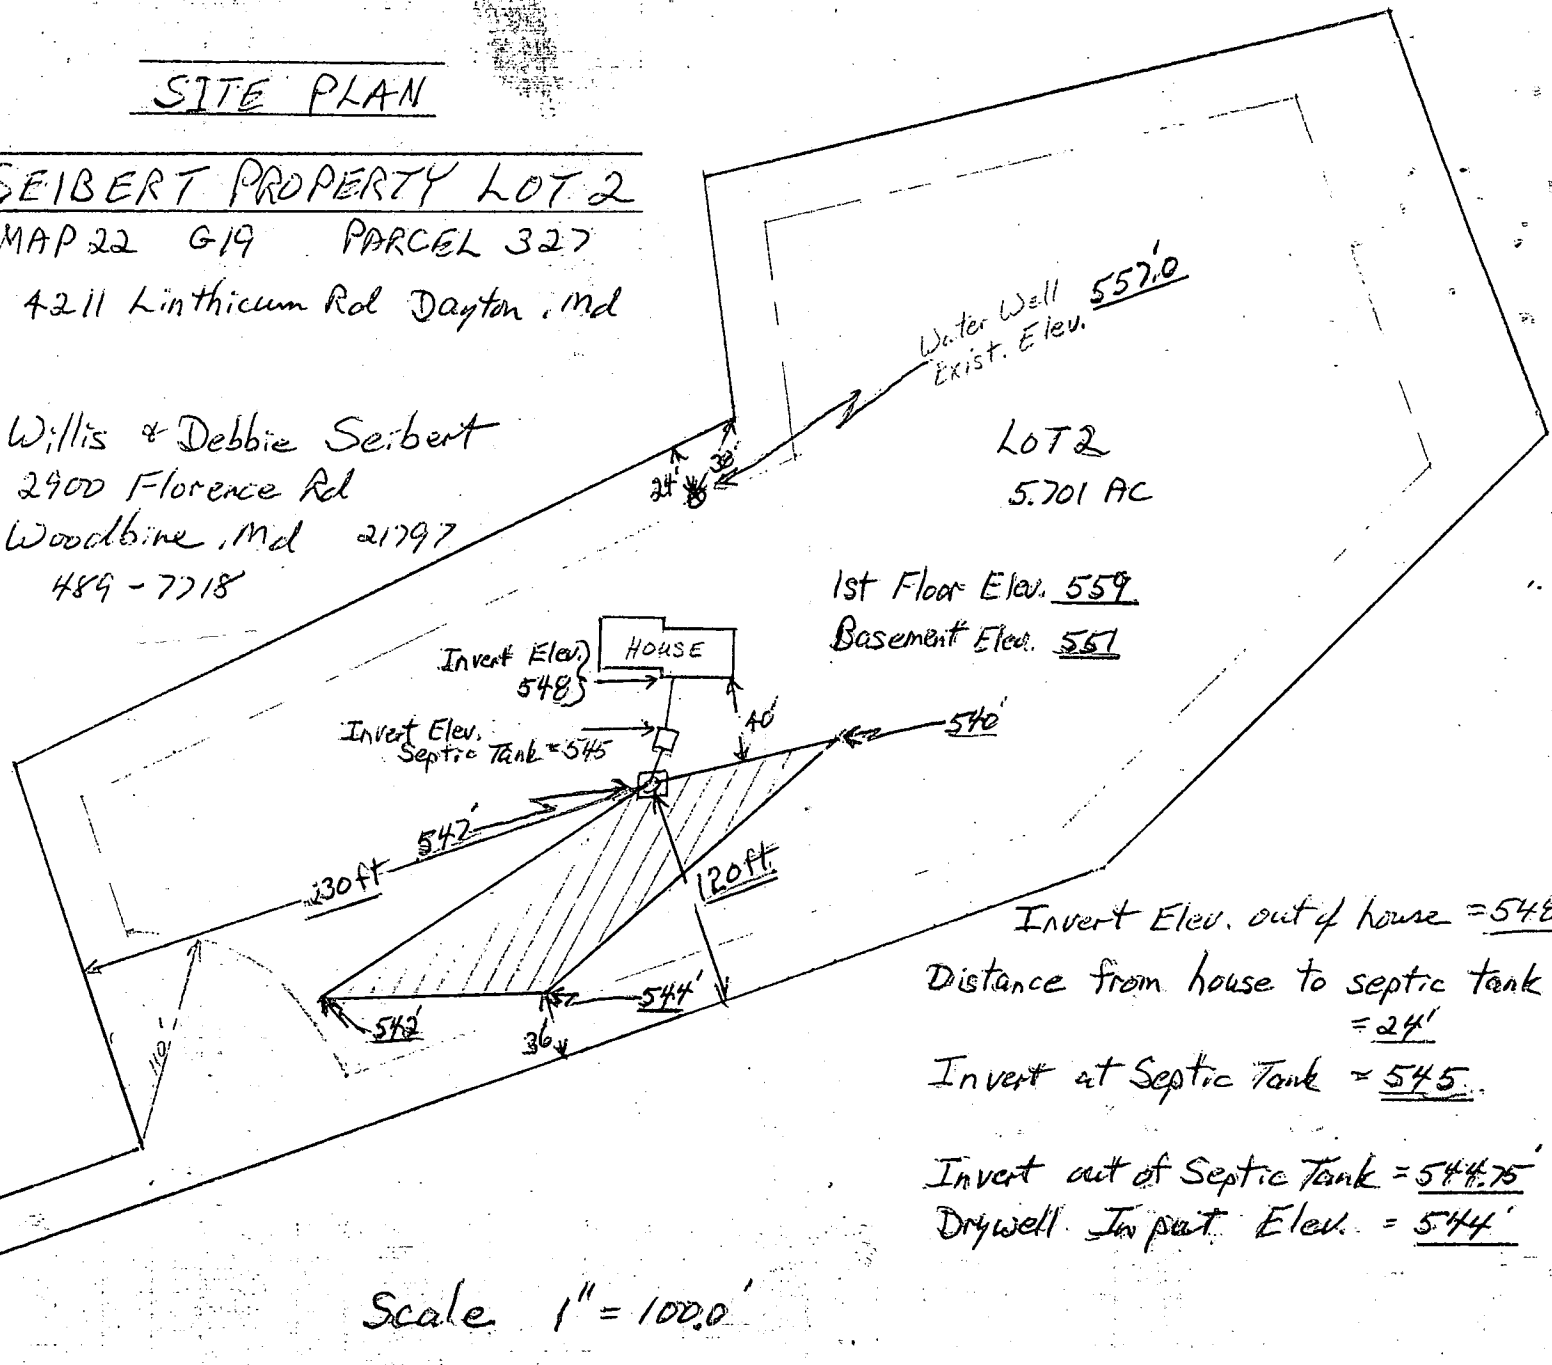 SITE PLAN
SEIBERT PROPERTY LOT 2
MAP 22 G19 PARCEL 327
4211 Linthicum Rd Dayton, Md
Willis & Debbie Seibert
2900 Florence Rd
Woodbine, Md 21797
489-7718
Water Well 557.0'
Exist. Elev.
LOT 2
5.701 AC
24'
38'
1st Floor Elev. 559
Basement Elev. 551
HOUSE
Invert Elev.
548
Invert Elev.
Septic Tank = 545
40'
540'
547'
230 ft
120 ft.
544'
542'
36'
110'
Invert Elev. out of house = 548
Distance from house to septic tank
= 24'
Invert at Septic Tank = 545
Invert out of Septic Tank = 544.75'
Drywell Input Elev. = 544'
Scale 1" = 100.0'